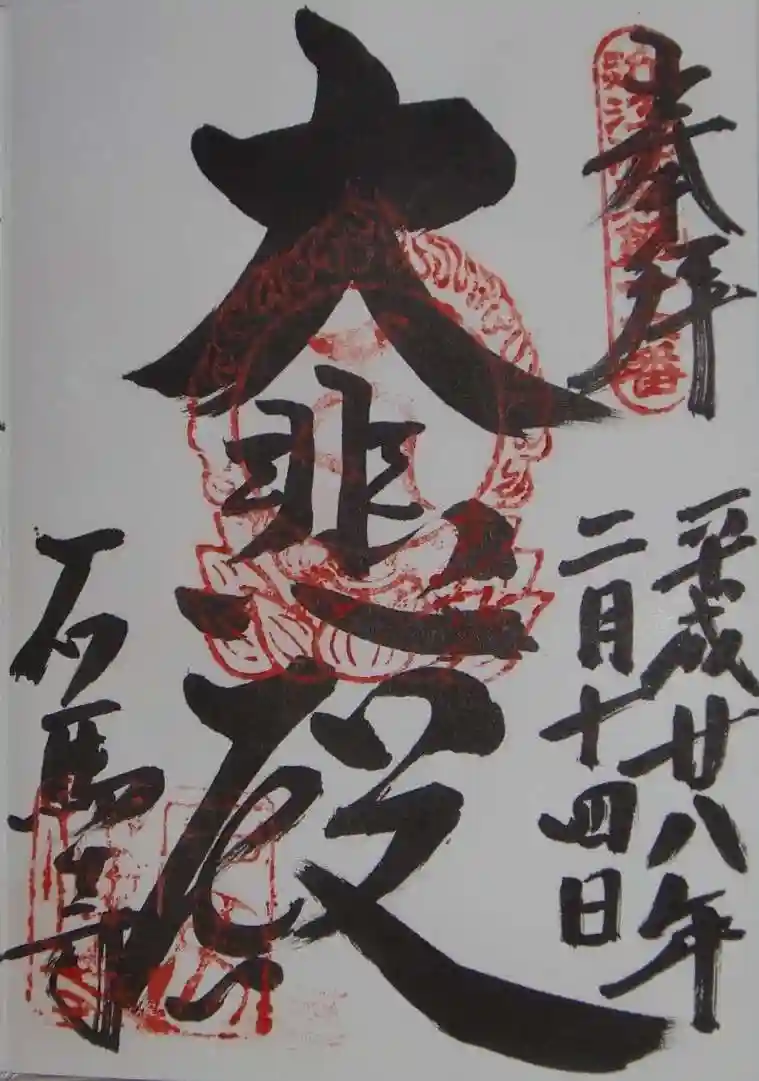 奉拝
平成廿八年
二月十四日
大悲殿
石馬寺